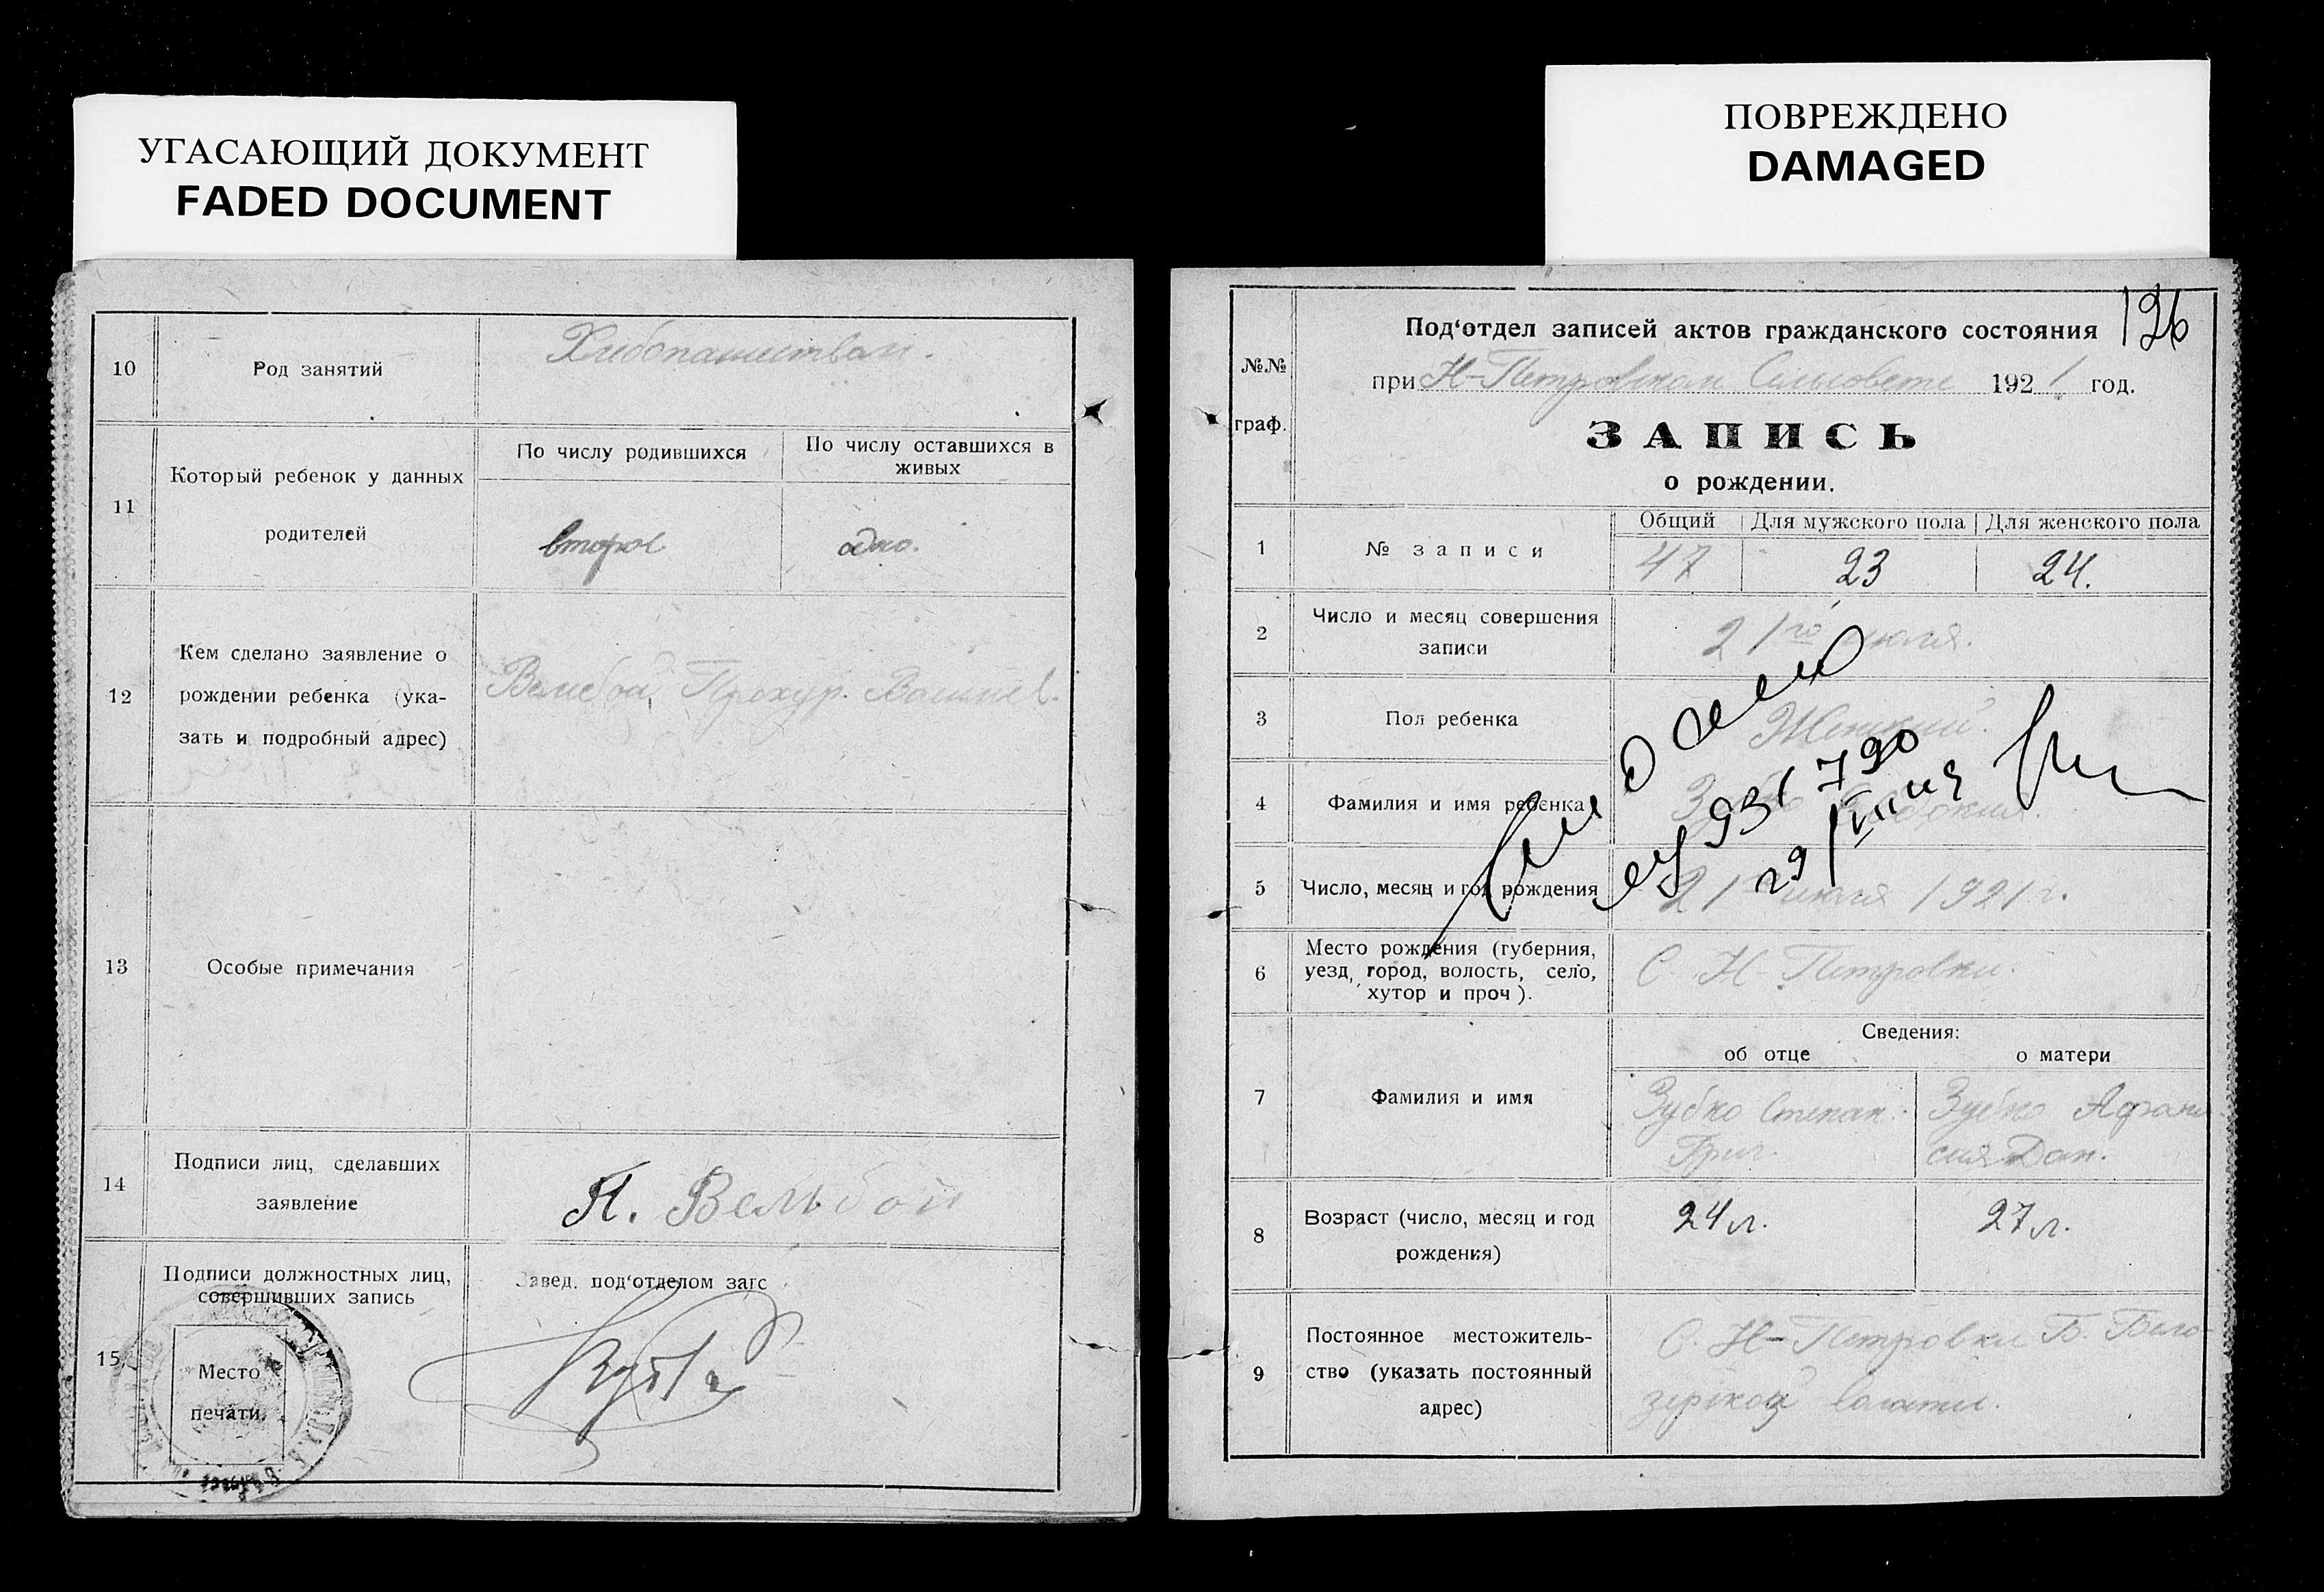 УГАСАЮЩИЙ ДОКУМЕНТ
FADED DOCUMENT
10
Род занятий
Хлебопашеством.
11
Который ребенок у данных
родителей
По числу родившихся
По числу оставшихся в
живых
второе
одно.
12
Кем сделано заявление о
рождении ребенка (ука-
зать и подробный адрес)
Вельбой, Прохор.
13
Особые примечания
14
Подписи лиц, сделавших
заявление
П. Вельбой
15
Подписи должностных лиц,
совершивших запись
Место
печати.
Завед. под'отделом загс
ПОВРЕЖДЕНО
DAMAGED
126
№№
граф.
Под'отдел записей актов гражданского состояния
при Н-Петровском Сельсовете 1921 год.
ЗАПИСЬ
о рождении.
1
№ записи
Общий
Для мужского пола
Для женского пола
47
23
24.
2
Число и месяц совершения
записи
21го июля.
3
Пол ребенка
Женский.
4
Фамилия и имя ребенка
5
Число, месяц и год рождения
21 июля 1921 г.
6
Место рождения (губерния,
уезд, город, волость, село,
хутор и проч).
С. Н-Петровки.
7
Фамилия и имя
Сведения:
об отце
о матери
Зубко Степан.
Григ.
Зубко Афана-
сия Дан.
8
Возраст (число, месяц и год
рождения)
24 л.
27 л.
9
Постоянное местожитель-
ство (указать постоянный
адрес)
С. Н-Петровки Б. Бело-
зерской волости.